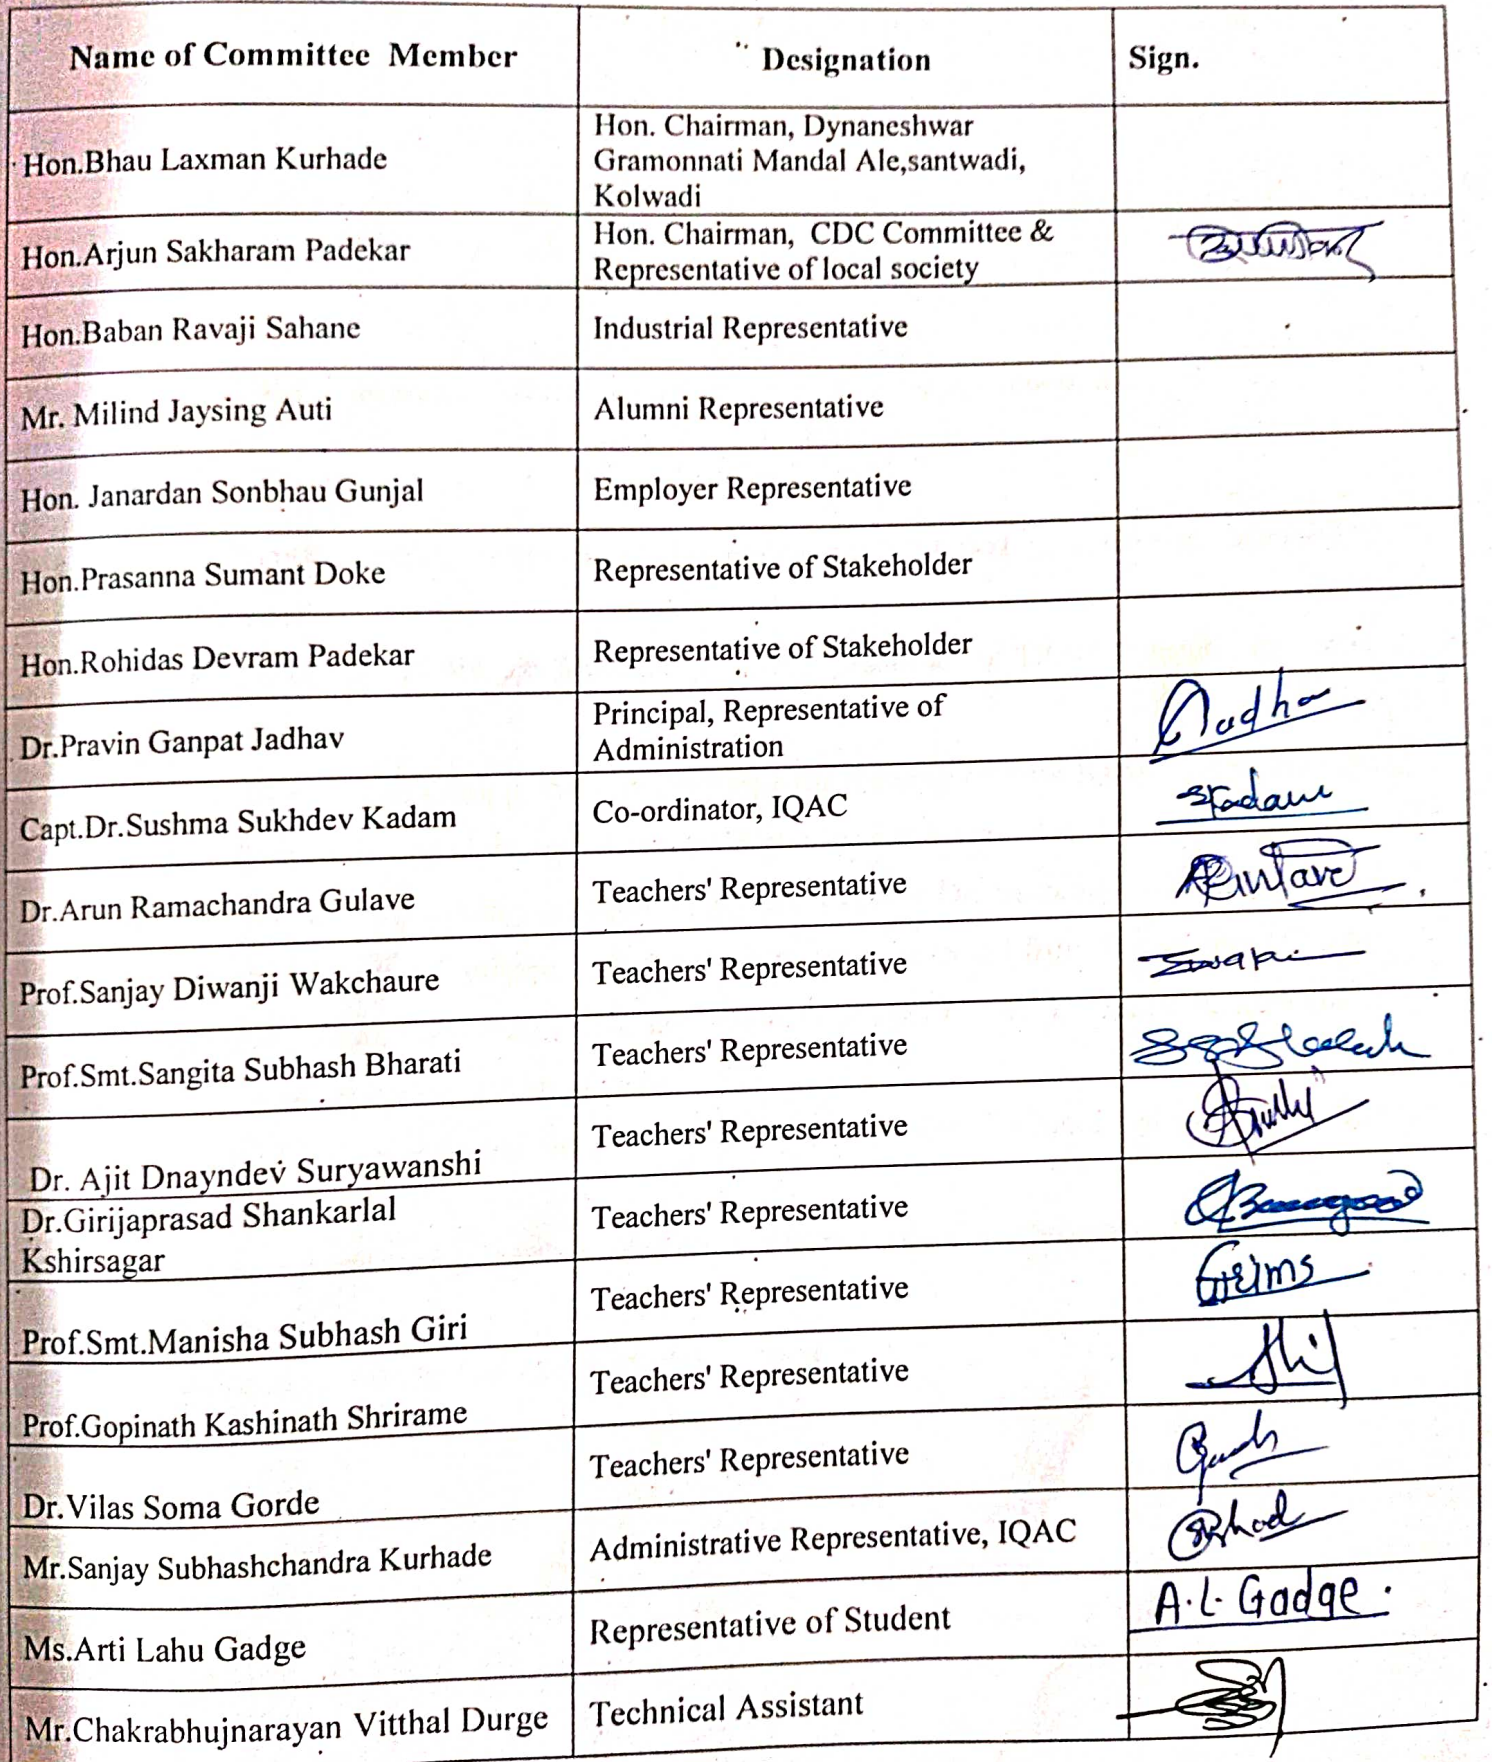 Name of Committee Member Designation Sign.
Hon.Bhau Laxman Kurhade Hon. Chairman, Dynaneshwar
Gramonnati Mandal Ale,santwadi,
Kolwadi
Hon.Arjun Sakharam Padekar Hon. Chairman, CDC Committee &
Representative of local society
Hon.Baban Ravaji Sahane Industrial Representative
Mr. Milind Jaysing Auti Alumni Representative
Hon. Janardan Sonbhau Gunjal Employer Representative
Hon.Prasanna Sumant Doke Representative of Stakeholder
Hon.Rohidas Devram Padekar Representative of Stakeholder
Dr.Pravin Ganpat Jadhav Principal, Representative of
Administration
Capt.Dr.Sushma Sukhdev Kadam Co-ordinator, IQAC
Dr.Arun Ramachandra Gulave Teachers' Representative
Prof.Sanjay Diwanji Wakchaure Teachers' Representative
Prof.Smt.Sangita Subhash Bharati Teachers' Representative
Dr. Ajit Dnayndev Suryawanshi Teachers' Representative
Dr.Girijaprasad Shankarlal
Kshirsagar Teachers' Representative
Prof.Smt.Manisha Subhash Giri Teachers' Representative
Prof.Gopinath Kashinath Shrirame Teachers' Representative
Dr.Vilas Soma Gorde Teachers' Representative
Mr.Sanjay Subhashchandra Kurhade Administrative Representative, IQAC
Ms.Arti Lahu Gadge Representative of Student A.L. Gadge.
Mr.Chakrabhujnarayan Vitthal Durge Technical Assistant